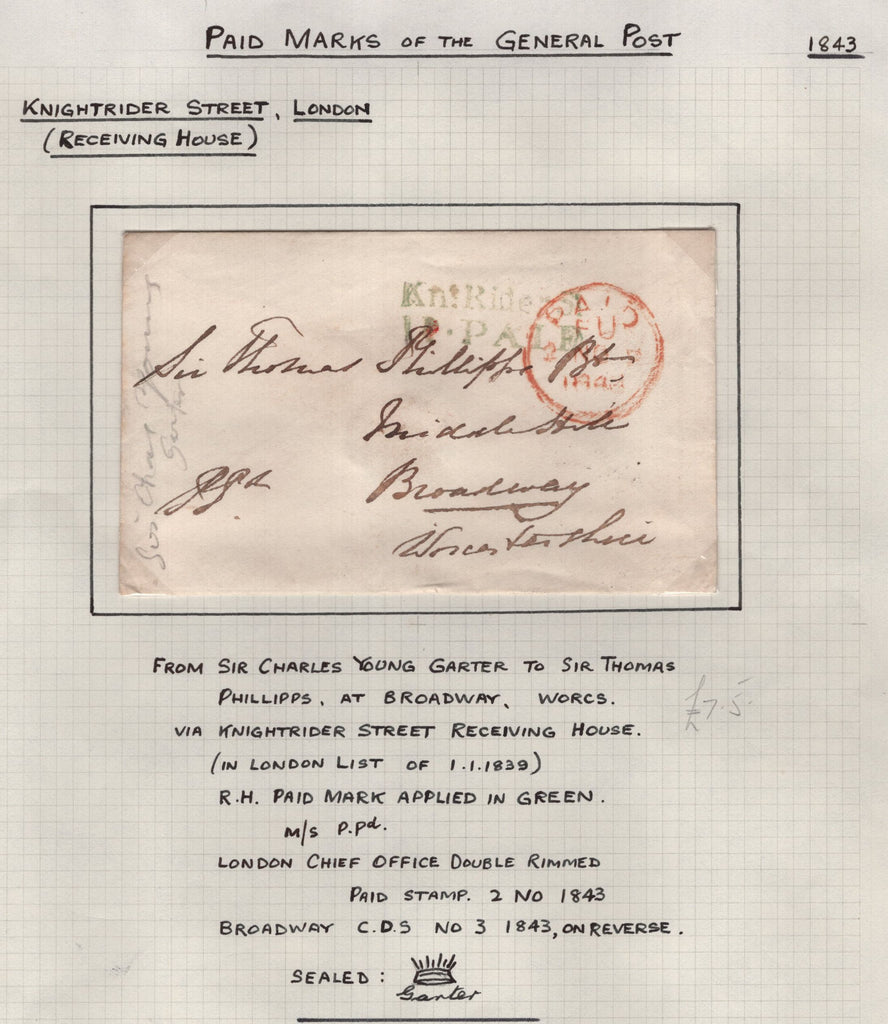 PAID MARKS OF THE GENERAL POST
1843
KNIGHTRIDER STREET, LONDON
(RECEIVING HOUSE)
Knt Ride
PAID
EU
2 NO
Sir Thomas Phillipps Bt
Middle Hill
Broadway
Worcestershire
ppd
Sir Chas Young
Garter
FROM SIR CHARLES YOUNG GARTER TO SIR THOMAS
PHILLIPPS, AT BROADWAY, WORCS.
£7.5
VIA KNIGHTRIDER STREET RECEIVING HOUSE.
(IN LONDON LIST OF 1.1.1839)
R.H. PAID MARK APPLIED IN GREEN.
M/S P.Pd.
LONDON CHIEF OFFICE DOUBLE RIMMED
PAID STAMP. 2 NO 1843
BROADWAY C.D.S NO 3 1843, ON REVERSE.
SEALED:
Garter